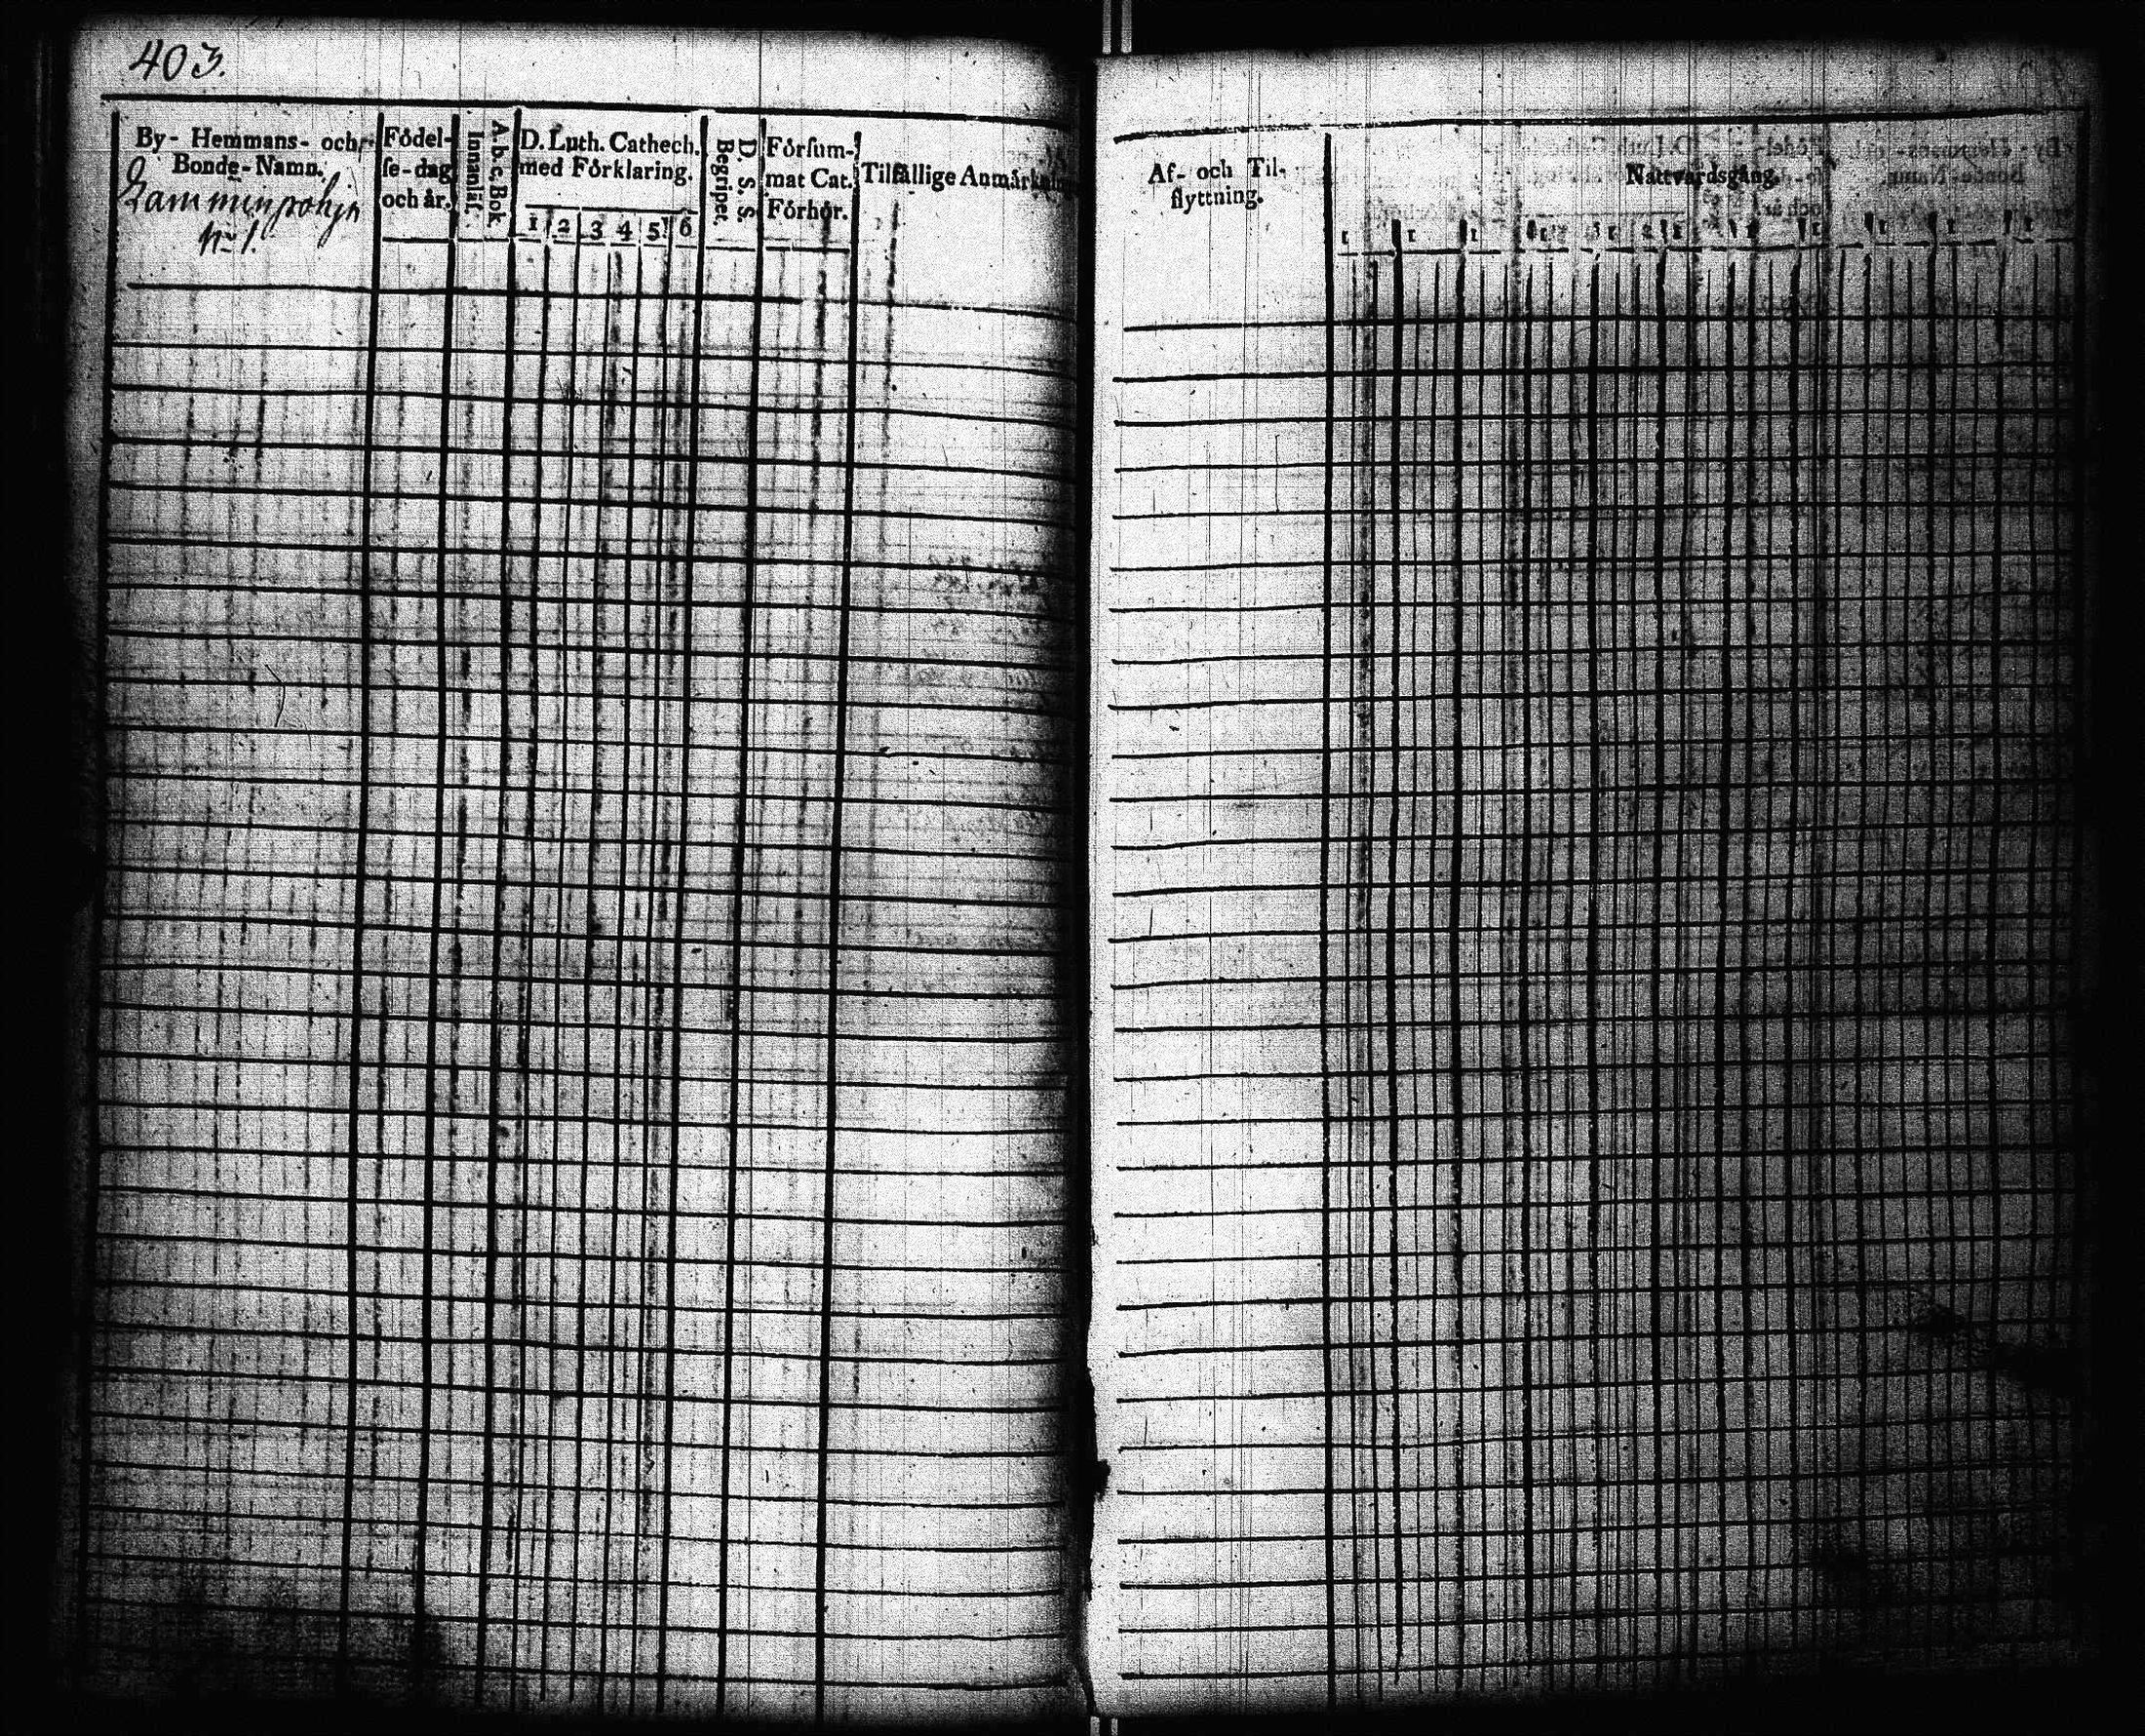 403.
By- Hemmans- och
Bonde-Namn.
Lamminpohja
No 1.
Födel-
se-dag
och år.
Innanläs.
A.b.c.Bok.
D. Luth. Cathech.
med Förklaring.
1 2 3 4 5 6
D. S. S.
Begripet.
Försum-
mat Cat.
Förhör.
Tilfällige Anmärkningar
Af- och Til-
flyttning.
Nattvardsgång.
1 1 1 1 1 1 1 1 1 1 1